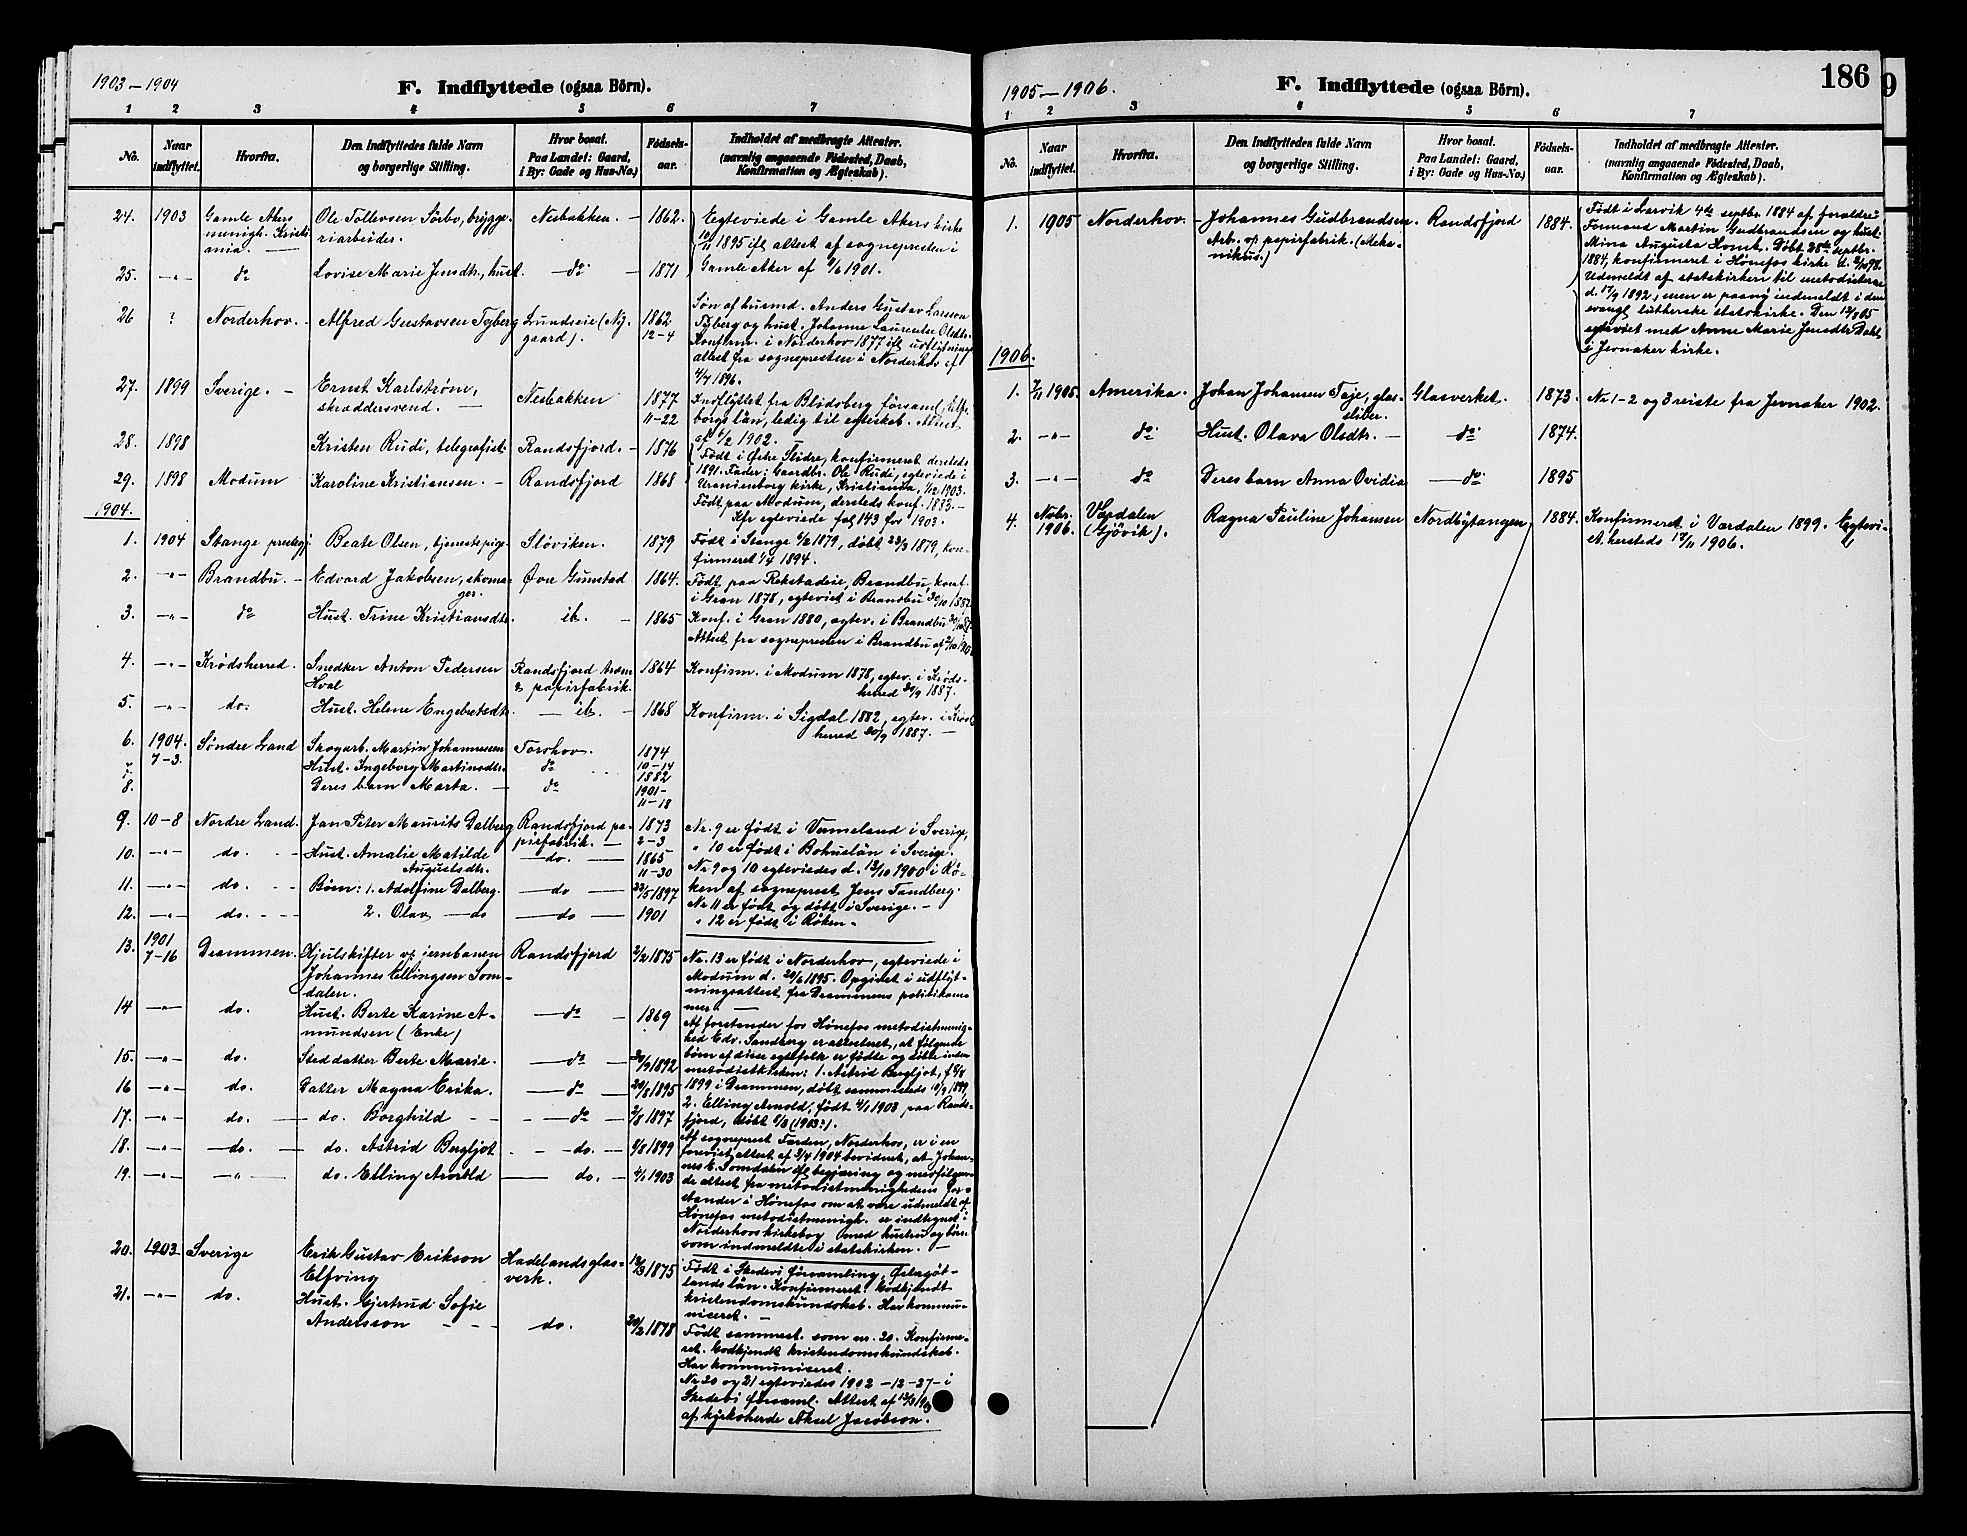 1903-1904
F. Indflyttede (ogsaa Börn).
1 2 3 4 5 6 7
No.
Naar indflyttet.
Hvorfra.
Den Indflyttedes fulde Navn og borgerlige Stilling.
Hvor bosat. Paa Landet: Gaard, i By: Gade og Hus-No.)
Fødsels-aar.
Indholdet af medbragte Attester. (navnlig angaaende Födested, Daab, Konfirmation og Ægteskab).
24. 1903 Gamle Akers Ole Tollevsen Sörbo, brygge- Nesbakken. - 1862. Egteviede i Gamle Akers kirke
menigh. Kristi- riarbeider. 10/11 1895 ifl. attest af sognepresten i
ania.
25. -"- do Lovise Marie Jensdtr., hust. -do- 1871 Gamle Aker af 1901.
26 ? Norderhov. - Alfred Gustavsen Tyberg Lundseie (Ny- 1862 Søn af husmd. Anders Gustav Larsson
gaard). 12-4 Tyberg og hust. Johanne Laurentse Olsdtr.
Konfirm. i Norderhov 1877 ifl. udflytnings-
attest fra sognepresten i Norderhov af
4/7 1896.
27. 1899 Sverige. - Ernst Karlström, Nesbakken 1877 Indflyttet fra Blidsberg församl., Elfs-
skræddersvend. - 11-22 borgs län, ledig til egteskab. Attest
af 6/2 1902.
28. 1898 Kristen Rudi, telegrafist. Randsfjord. - 1876 Født i Østre Slidre, konfirmeret dersteds
1891. Fader: Gaardbr. Ole Rudi, egteviede i
29. 1898 Modum Karoline Kristiansen. - Randsfjord 1868 Uranienborg kirke, Kristiania, 1/12 1903.
Født paa Modum, dersteds konf. 1883. -
1904. Kfr egteviede fol 143 for 1903.
1. 1904 Stange prestegj. Beate Olsen, tjenestepige Slöviken. 1879 Født i Stange 1879, døbt 23/3 1879, kon-
firmeret 1894.
2. -"- Brandbu. - Edvard Jakobsen, skoma- Øvre Gunstad 1864. Født paa Rekstadeie, Brandbu, konf.
ger. i Gran 1878, egteviet i Brandbu 30/10 1887
3. -"- do Hust. Trine Kristiansdtr. ib. - 1865 Konf. i Gran 1880, egtev. i Brandbu 30/10 87.
Attest fra sognepresten i Brandbu af
4. -"- Krødsherred. Snedker Anton Pedersen Randsfjord træm- 1864 Konfirm. i Modum 1878, egtev. i Krøds-
Hval & papirfabrik. herred 30/9 1887.
5. -"- do. Hust. Helene Engebretsdtr. - ib. - 1868 Konfirm. i Sigdal 1882, egtev. i Krøds-
herred 30/9 1887. -
6. 1904. Søndre Land Skogarb. Martin Johannessen Torshov. 1874
7-3. 10-14
7. Hust. Ingeborg Martinsdtr. do 1882
8. Deres barn Marta. - do 1901-
11-18
9. 10-8 Nordre Land. Jan Peter Maurits Dalberg Randsfjord pa- 1873 Nr. 9 er født i Vermeland i Sverige,
pirfabrik. - 2-3
10. -"- do. - - Hust. Amalie Matilde -do.- 1865 " 10 er født i Bohuslän i Sverige.
Augustsdtr. 11-30 Nr 9 og 10 egteviedes d. 13/10 1900 i Rø-
11. -"- do. - - Börn: 1. Adolfine Dalberg. -do- 22/5 1897 ken af sogneprest Jens Tandberg.
Nr 11 er født og døbt i Sverige. -
12. -"- do. - - - 2. Olav -do -do- 1901 " 12 er født i Røken. -
13. 1901 Drammen. Hjulskifter v. jernbanen Randsfjord 2/2 1875 Nr. 13 er født i Norderhov, egteviede i
7-16 Johannes Ellingsen Som- Modum d. 29/6 1895. Opgivet i udflyt-
dalen. ningsattest fra Drammens politikam-
mer. -
14 -"- do. Hust. Berte Karine A- -do- 1869 Af forstander for Hønefos metodistmenig-
mundsen (Enke) hed Edv. Sandberg er attesteret, at følgende
15. -"- do. Steddatter Berte Marie. -do- 1892 børn af disse egtefolk er fødte og døbte inden
metodistkirken: 1. Astrid Bergljot, f.
16 -"- do. Datter Magna Erika. -do- 29/8 1895 1899 i Drammen, døbt sammesteds 10/9 1899,
17. -"- do. - do. Borghild - - -do- 2/8 1897 2. Elling Arnold, født 4/1 1903 paa Rands-
fjord, døbt 8/3 (1903?).
18. -"- -do. - do. Astrid Bergljot - - -do. - 1899 Af sogneprest Farden, Norderhov, er i en
19. -"- -"- do. Elling Arnold - do. - 4/1 1903 forevist attest af 3/4 1904 bevidnet, at Johan-
nes E. Somdalen ifl. begjæring og medfølgen-
de attest fra metodistmenighedens for-
stander i Hønefos om at være udmeldt af
Hønefos metodistmenigh. er indtegnet i
Norderhovs kirkebog med hustru og børn
som indmeldte i statskirken. -
20. 1903 Sverige Erik Gustav Erikson Hadelands glas- 1875 Født i Skedevi församling, Östergöt-
Elfving verk. lands län. Konfirmeret. Godkjendt
21. -"- do. Hust. Gjertrud Sofie kristendomskundskab. Har kommu-
niceret. -
Andersson - - - do. 20/2 1878 Født sammest. som nr. 20. Konfirme-
ret. Godkjendt kristendomskundskab.
Har kommuniceret.
Nr 20 og 21 egteviedes 1902-12-27- i
Skedevi församl. Attest af
af kyrkoherde Aksel Jacobson.
1905-1906.
F. Indflyttede (ogsaa Börn).
186
9
1 2 3 4 5 6 7
No.
Naar indflyttet.
Hvorfra.
Den Indflyttedes fulde Navn og borgerlige Stilling.
Hvor bosat. Paa Landet: Gaard, i By: Gade og Hus-No.)
Fødsels-aar.
Indholdet af medbragte Attester. (navnlig angaaende Födested, Daab, Konfirmation og Ægteskab).
1. 1905 Norderhov. - Johannes Gudbrandsen Randsfjord 1884. Født i Larvik 4de septbr. 1884 af forældre:
Arb. v. papirfabrik. (Meka- Formand Martin Gudbrandsen og hust.
nikus.) Mina Augusta Døbt 28de septbr.
1884, konfirmeret i Hønefos kirke d. 2/10 98.
Udmeldt af statskirken til metodisterne
d. 17/9 1892, men er paany indmeldt i den
evangl. lutherske statskirke. Den 05
egteviet med Anne Marie Jensdtr. Dahl
i Jevnaker kirke.
1906.
1. 1905. Amerika. Johan Johansen Taje, glas- Glasverket. 1873. Nr. 1-2 og 3 reiste fra Jevnaker 1902.
sliber.
2. -"- do Hust. Olava Olsdtr. - do 1874.
3. -"- do Deres barn Anna Ovidia -do 1895
4. Novbr. Vardalen Ragna Pauline Johansen Nordbytangen 1884. Konfirmeret i Vardalen 1899. Egtevi-
1906. (Gjövik). et hersteds 17/11 1906.